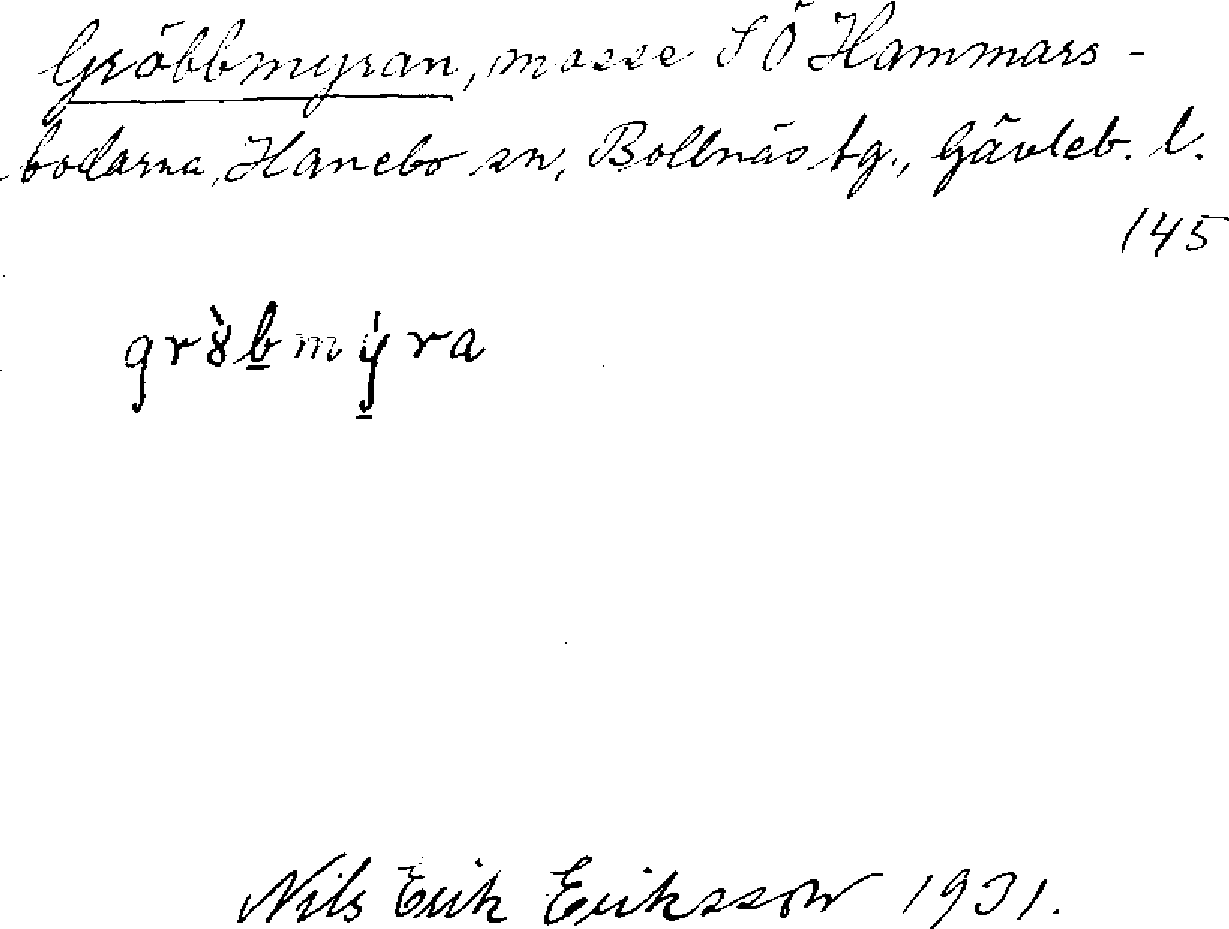 Gröbbmyran, mosse SÖ Hammars-
bodarna, Hanebo sn, Bollnäs tg., Gävleb. l.
145
gr8̀b̲mý̲ra
Nils Erik Eriksson 1931.